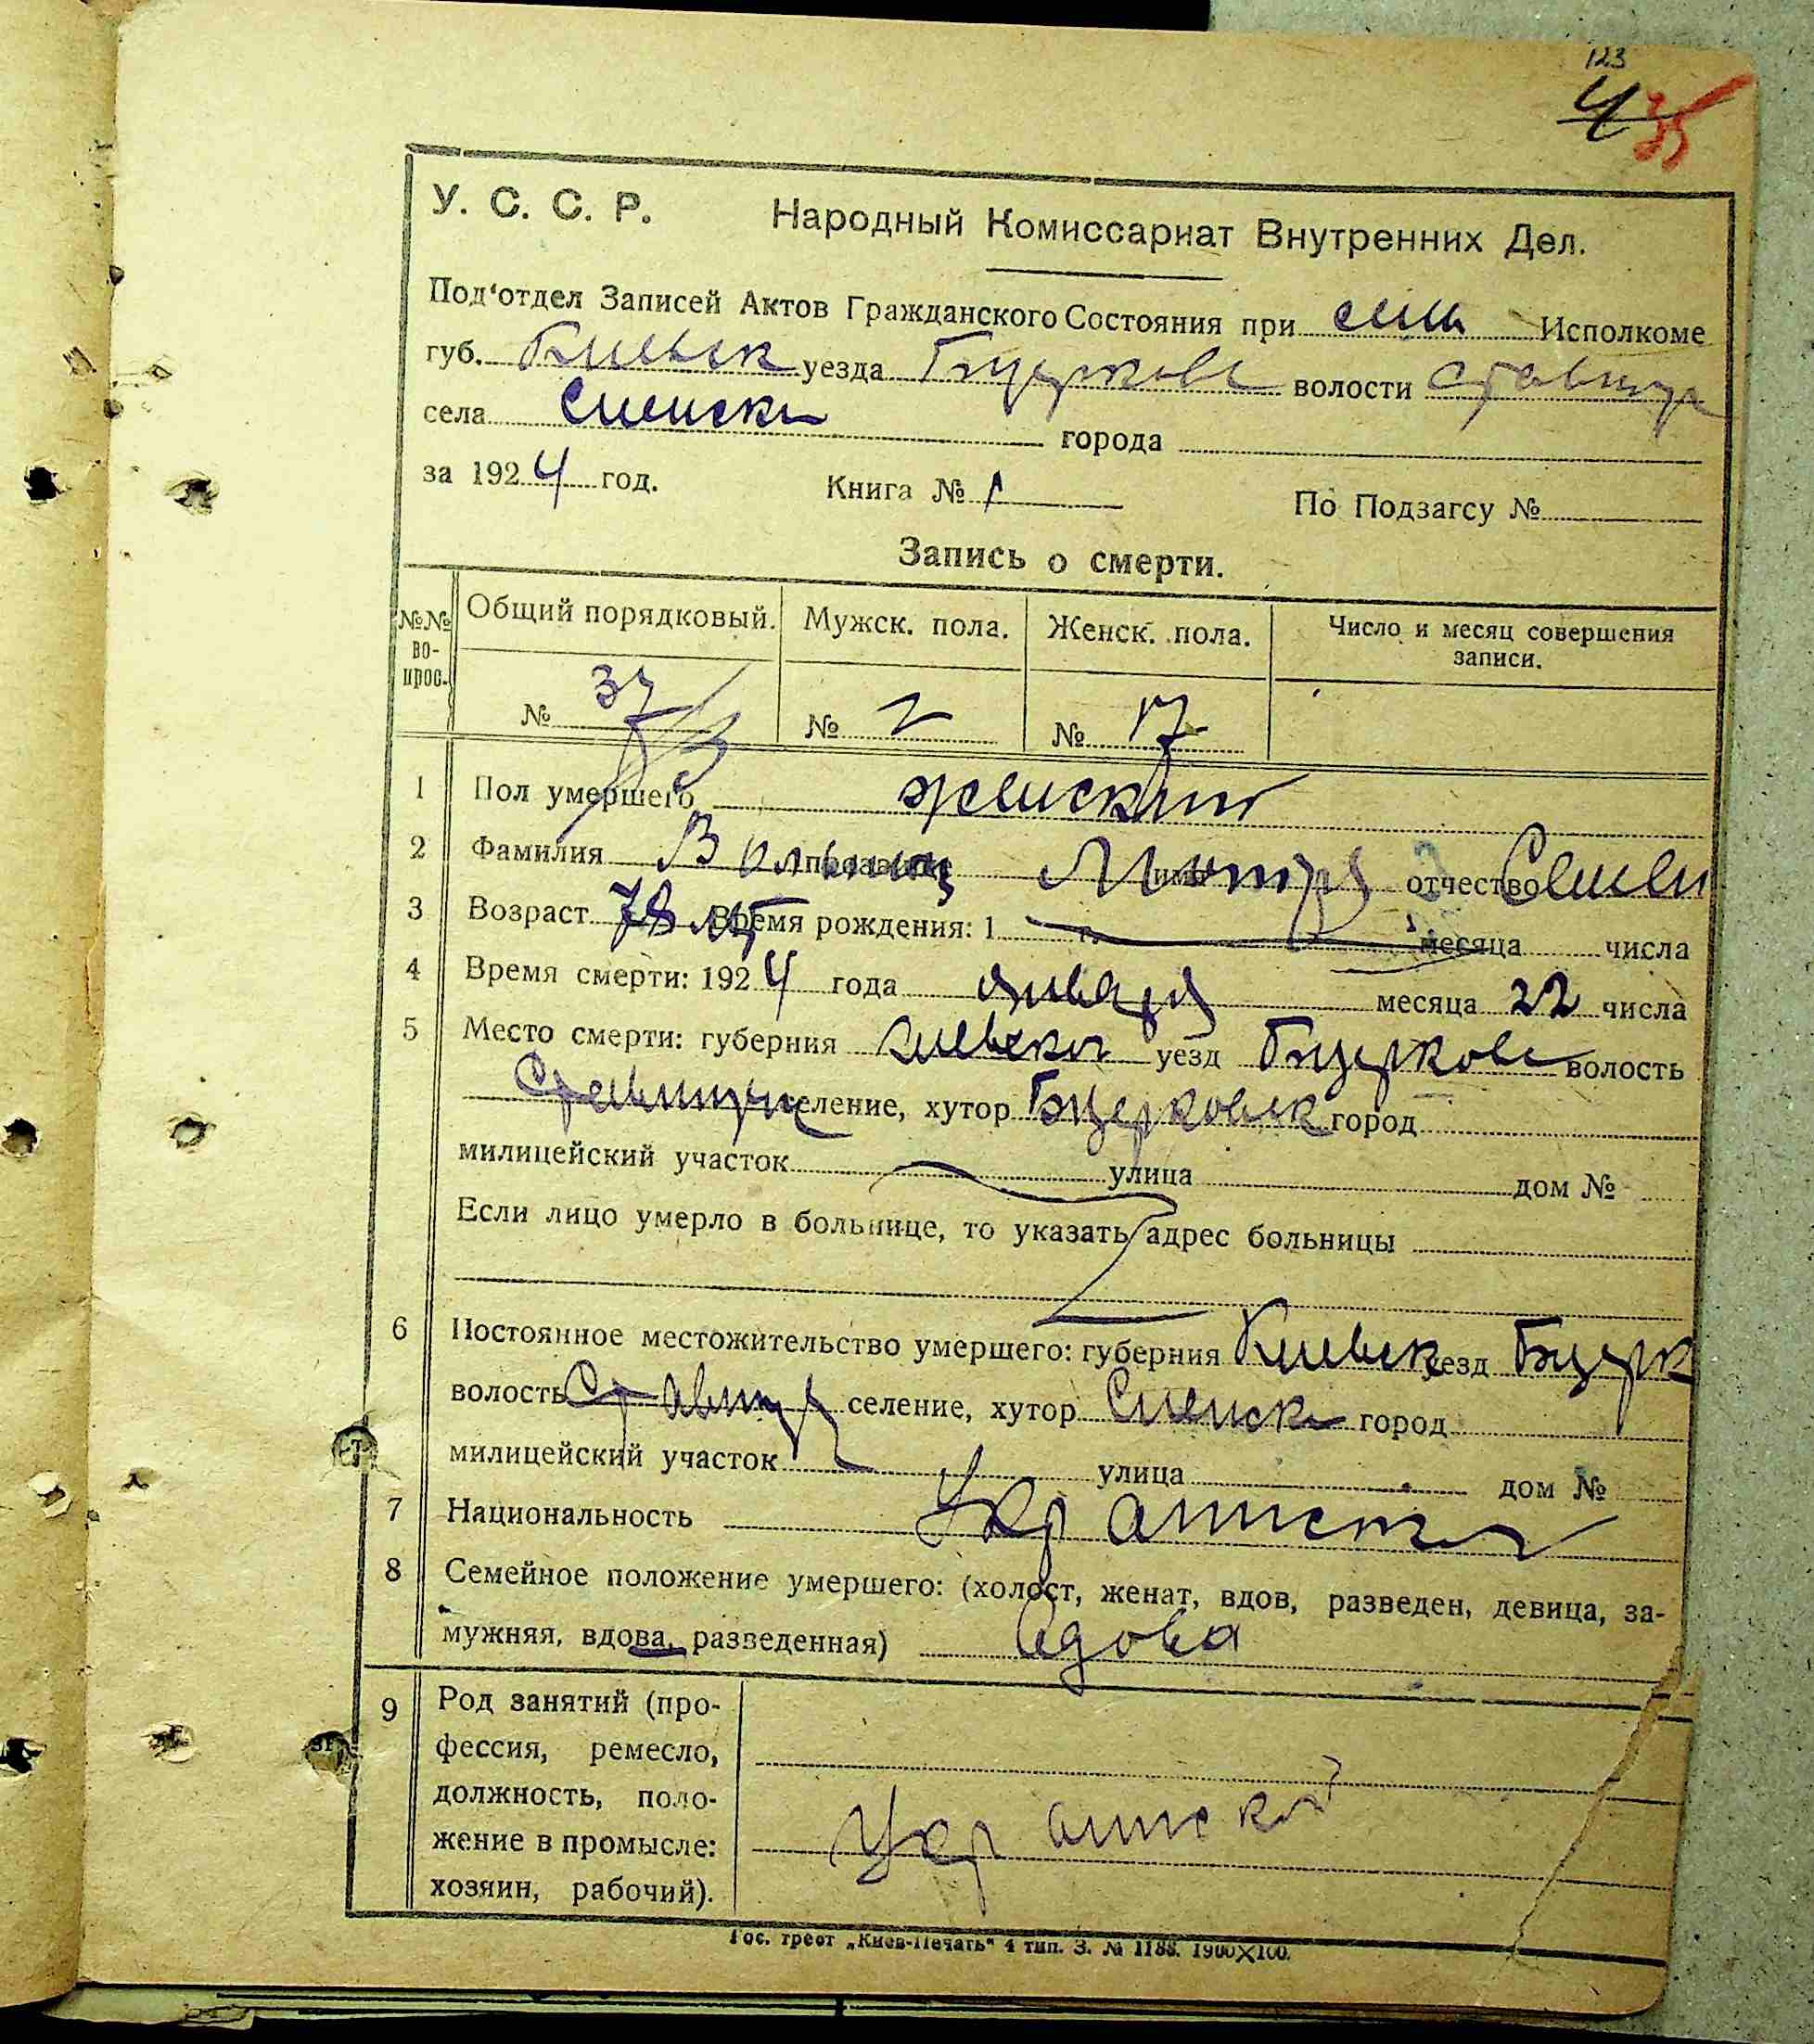 123
4 35
У. С. С. Р. Народный Комиссариат Внутренних Дел.
Под'отдел Записей Актов Гражданского Состояния при Исполкоме
губ. Киевск уезда Бцерковс волости Ставищ
села города
за 1924 год. Книга № 1 По Подзагсу №
Запись о смерти.
№№ во- прос. Общий порядковый. Мужск. пола. Женск. пола. Число и месяц совершения записи.
№ 37 № 2 № 17
1 Пол умершего женский
2 Фамилия прозвище имя отчество Семен
3 Возраст 78 лет Время рождения: 1 г. месяца числа
4 Время смерти: 1924 года января месяца 22 числа
5 Место смерти: губерния Киевска уезд Бцерковс волость
селение, хутор Бцерковск город
милицейский участок улица дом №
Если лицо умерло в больнице, то указать адрес больницы
6 Постоянное местожительство умершего: губерния Киевск уезд Бцерк
волость Ставищ селение, хутор город
милицейский участок улица дом №
7 Национальность
8 Семейное положение умершего: (холост, женат, вдов, разведен, девица, за-
мужняя, вдова, разведенная) вдова
9 Род занятий (про-
фессия, ремесло,
должность, поло-
жение в промысле: Украинской
хозяин, рабочий).
Гос. трест „Киев-Печать“ 4 тип. З. № 1188. 1900×100.